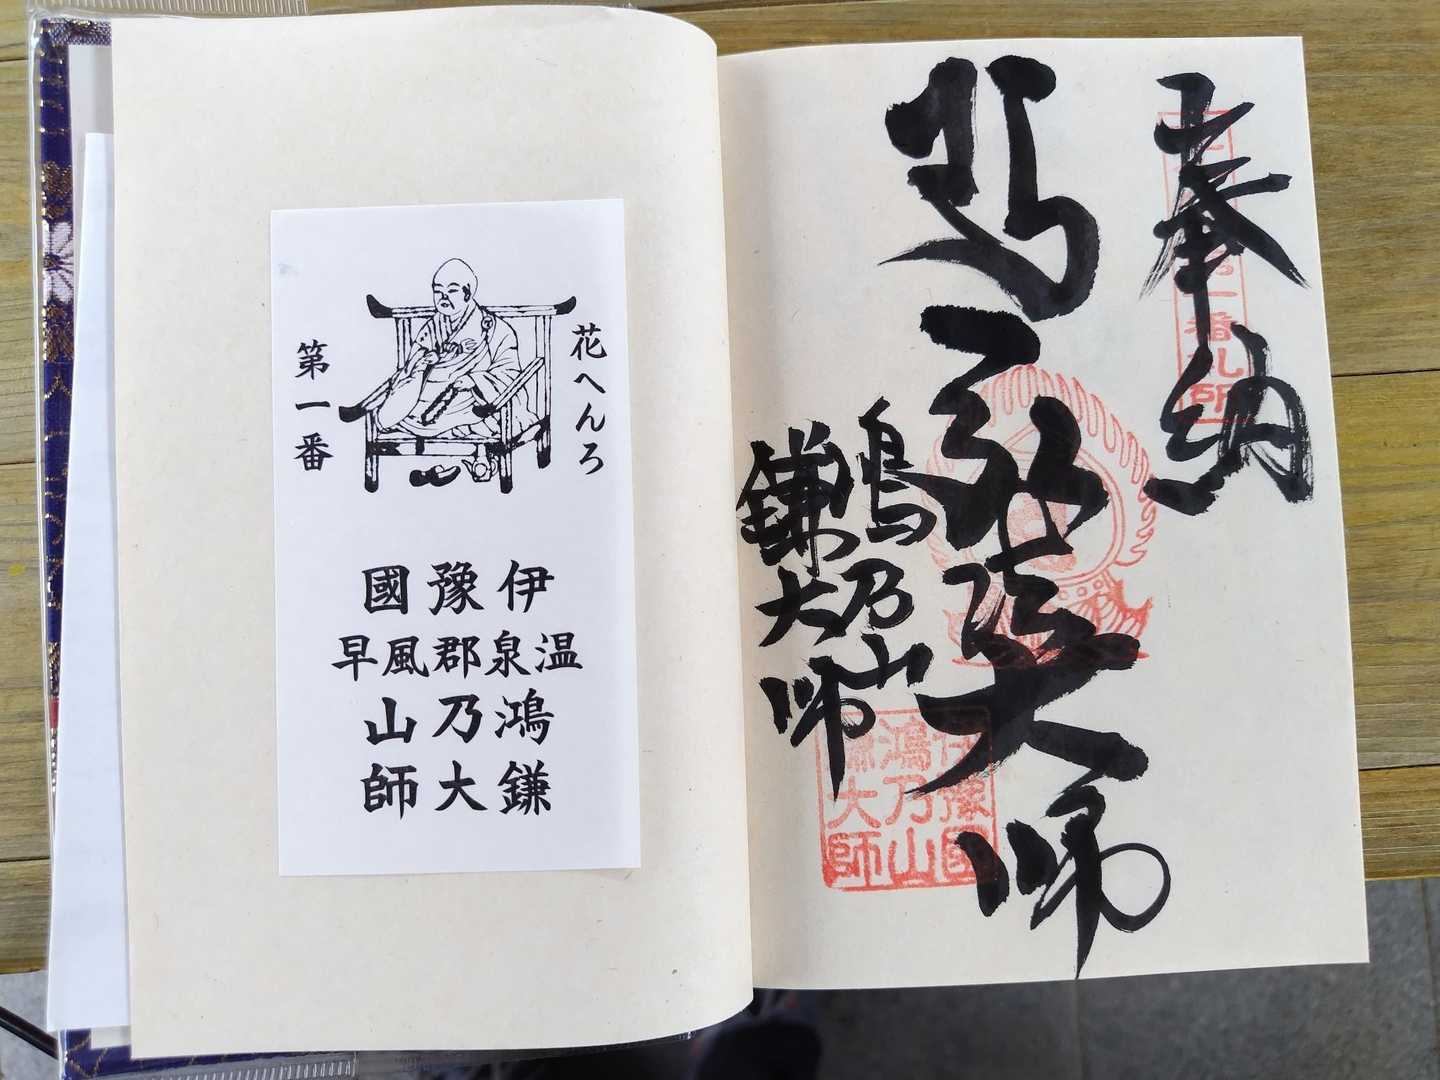 奉納
弘法大師
鴻乃山
鎌大師
一番札所
伊豫國
鴻乃山
鎌大師
花へんろ
第一番
伊豫國
温泉郡風早
鴻乃山
鎌大師